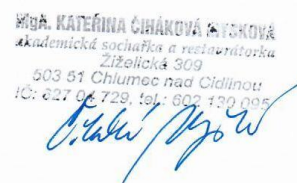 MgA. KATEŘINA ČIHÁKOVÁ MYSKOVÁ
akademická sochařka a restaurátorka
Žiželická 309
503 51 Chlumec nad Cidlinou
IČ: 627 04 729, tel.: 602 130 095